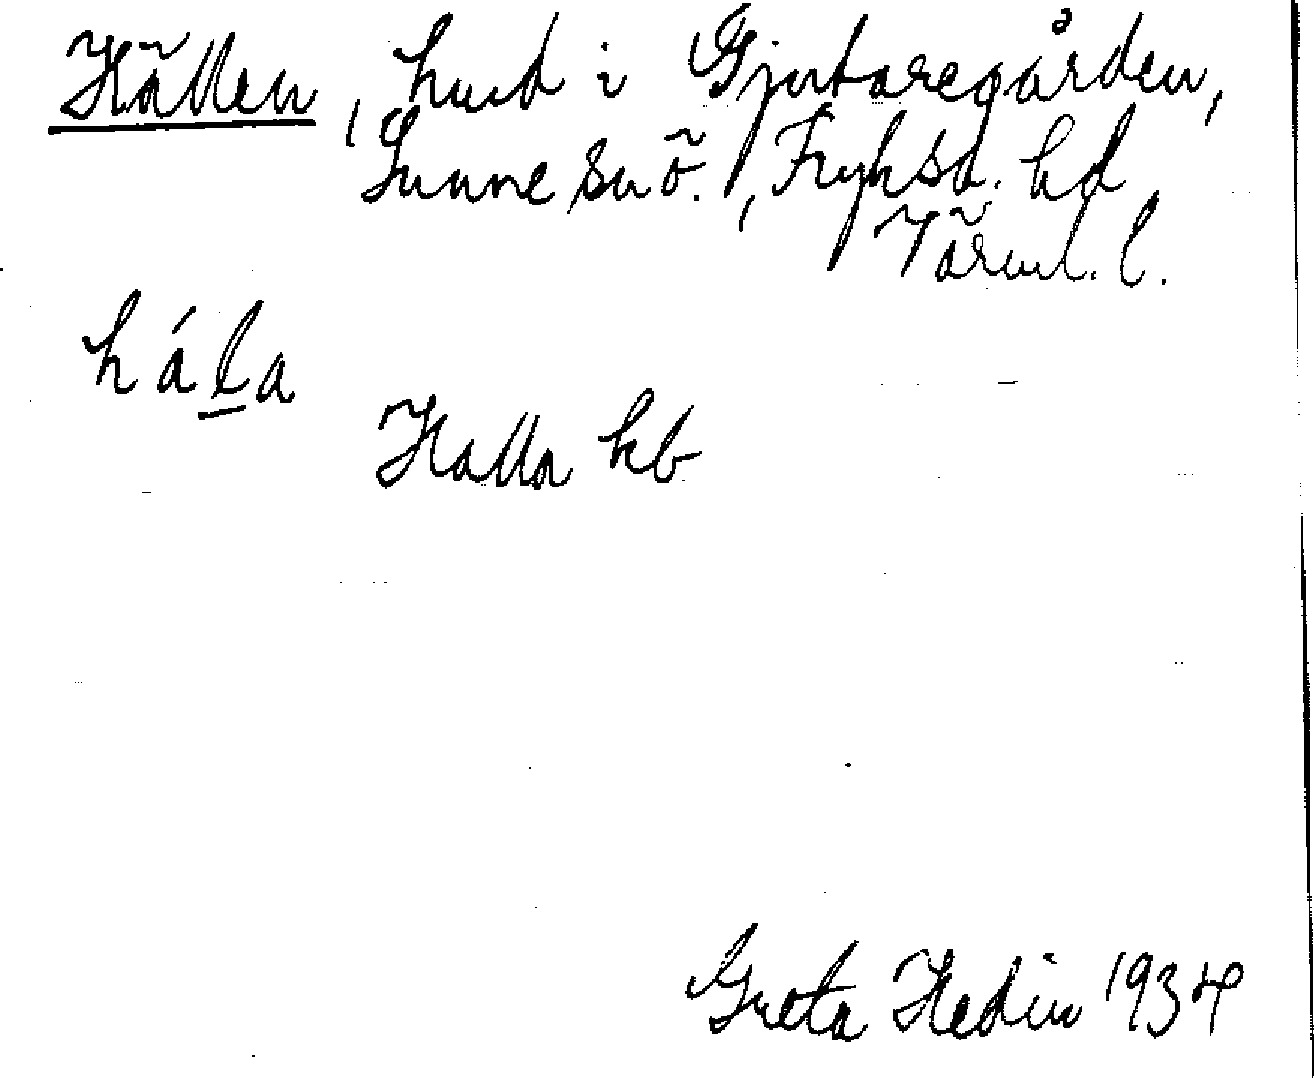 Hällen, hmd i Gjutaregården,
Sunne sn ö., Fryksd. hd,
Värml. l.
hála
Halla hb
Greta Hedin 1934